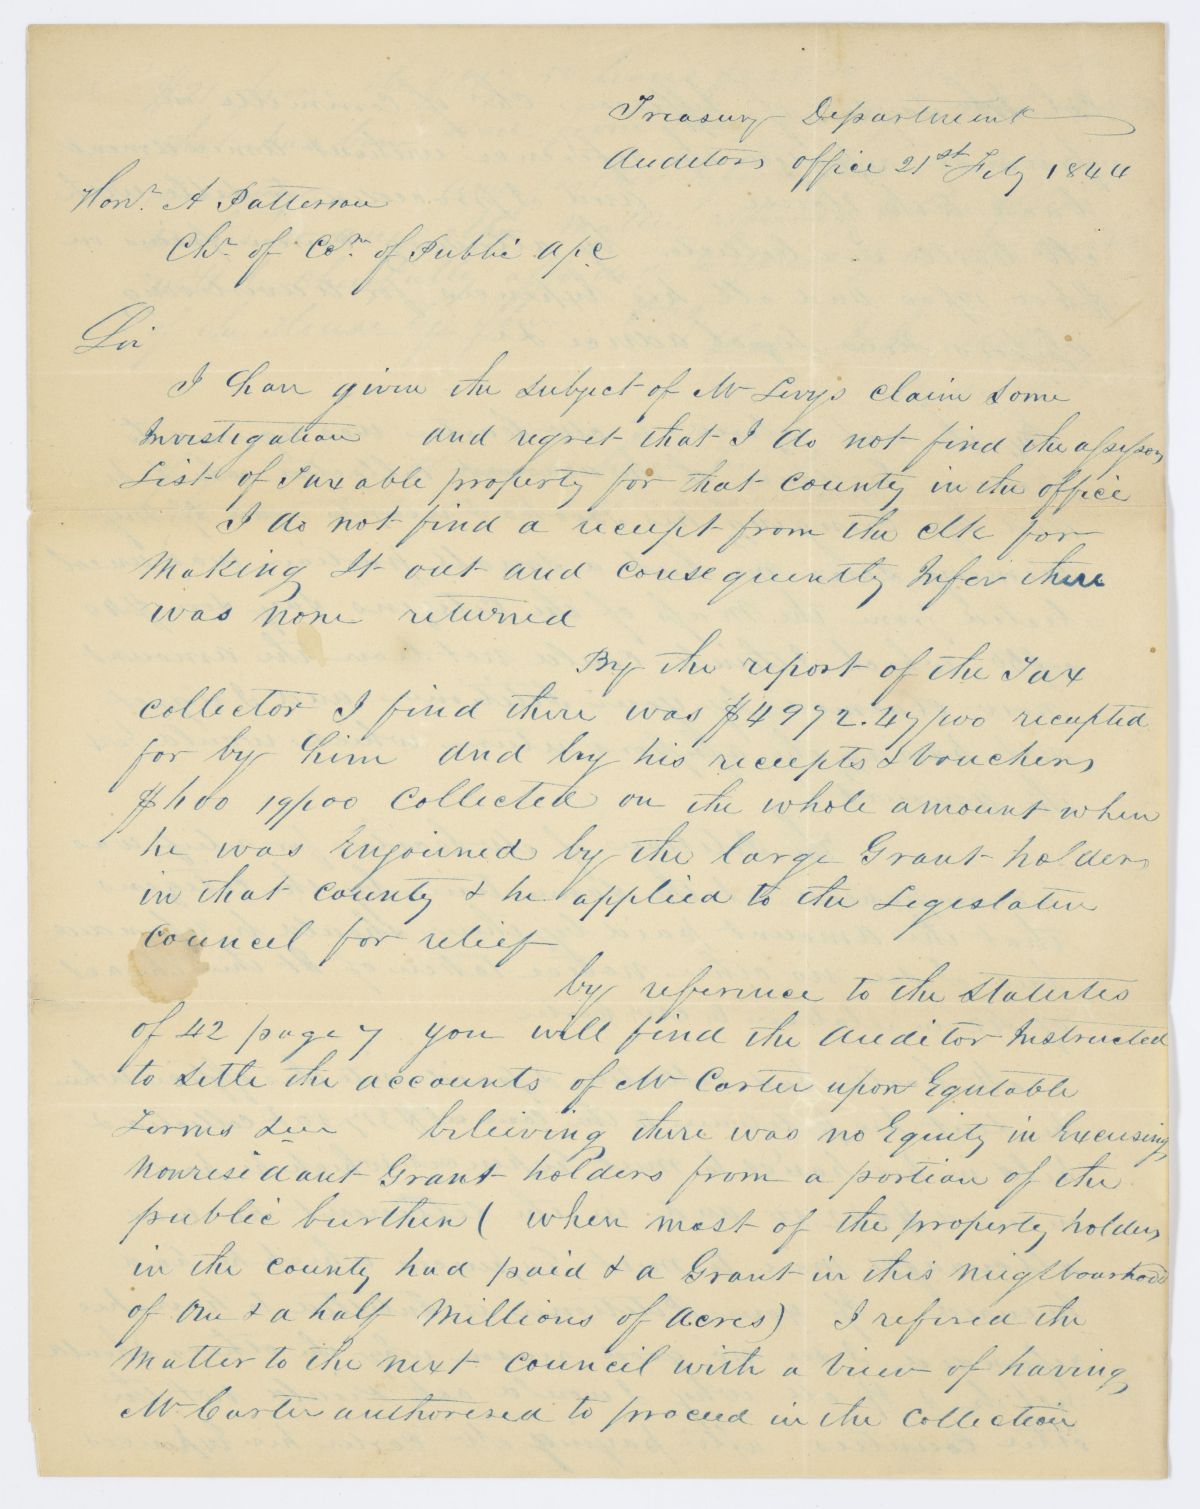 Treasury Department
Auditors office 21st Feby 1844
Honr. A Patterson
Chr. of Com. of Public a/c
Sir
I have given the subject of Mr Levys claim some
Investigation and regret that I do not find the assessors
List of Taxable property for that county in the office
I do not find a receipt from the clk for
Making It out and consequently Infer there
was none returned
By the report of the Tax
collector I find there was $4972.47/100 receipted
for by him and by his receipts & vouchers
19/100 collected on the whole amount when
he was Enjoined by the large Grant holders
in that county & he applied to the Legislative
Council for relief
by reference to the Statutes
of 42 page 7 you will find the Auditor Instructed
to settle the accounts of Mr Carter upon Equtable
Terms believing there was no Equity in Excusing
Nonresidant Grant holders from a portion of the
public burthen ( when most of the property holders
in the county had paid & a Grant in this neigbourhood
of one & a half Millions of Acres) I refered the
Matter to the next council with a view of having
Mr Carter authorised to proceed in the collection